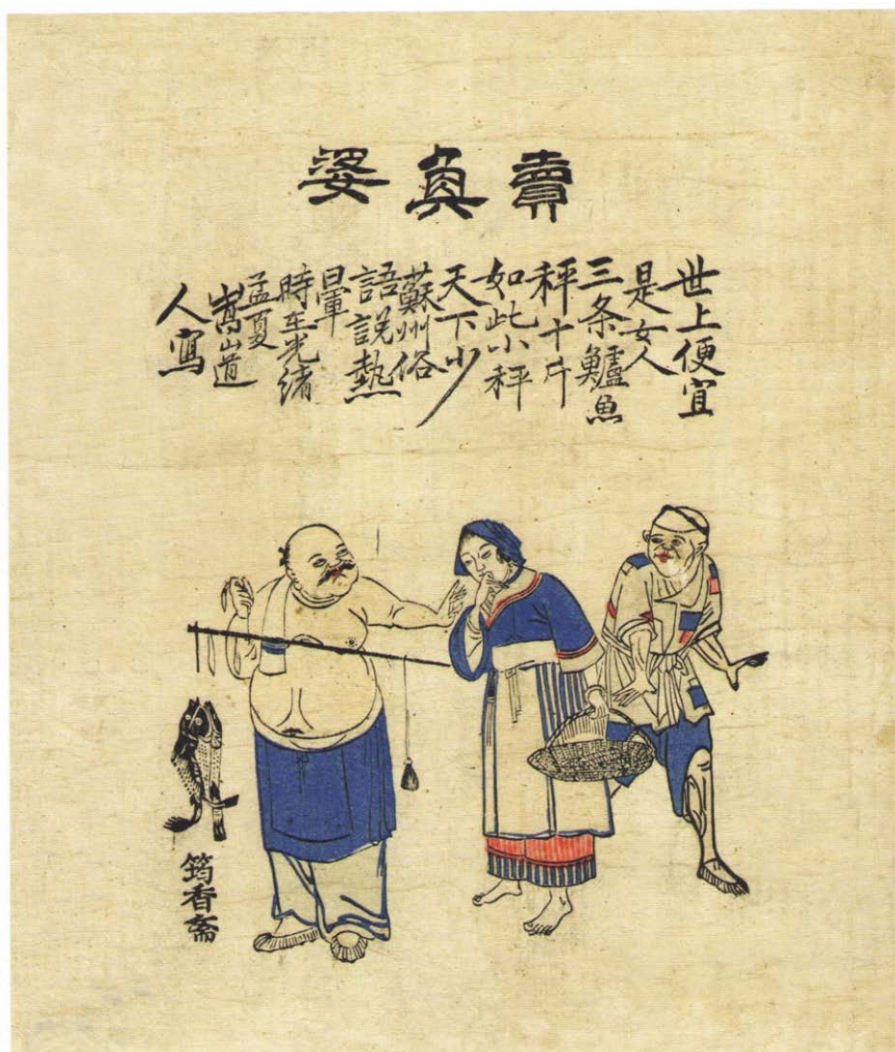 賣魚婆
世上便宜
是女人
三条鱸魚
秤十斤
如此小秤
天下少
蘇州俗
語説熱
暈
時在光緒
孟夏
嵩山道
人寫
筠香斋